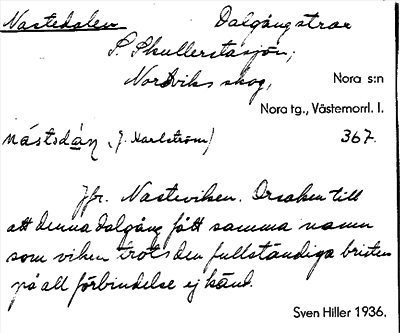 Nastedalen Dalgångstrax
S. Skullerstasjön;
Nordviks skog, Nora s:n
Nora tg., Västemorrl. l.
nástədàn (J. Karlström) 367.
Jfr. Nasteviken. Orsaken till
att denna dalgång fått samma namn
som viken trots den fullständiga bristen
på all förbindelse ej känd.
Sven Hiller 1936.